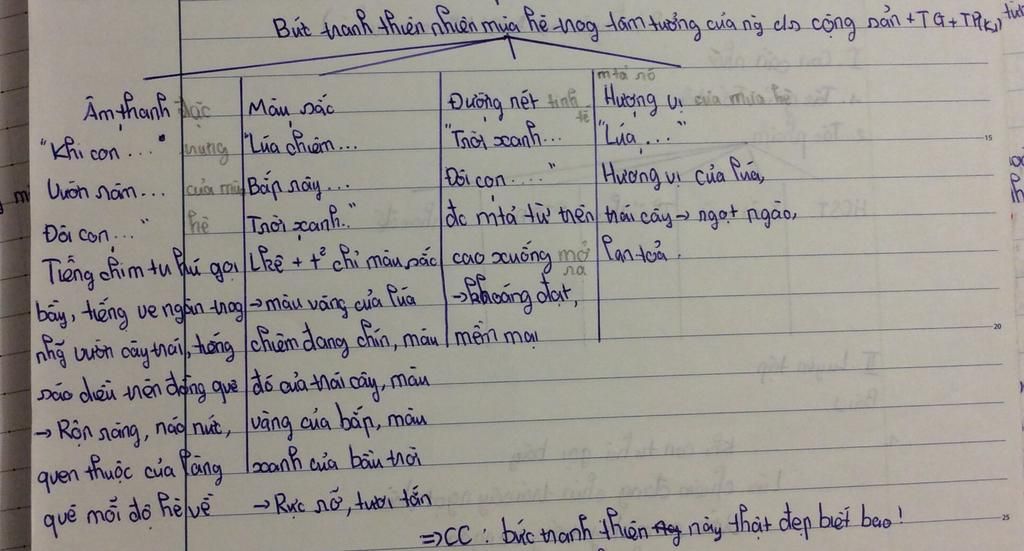 Bức tranh thiên nhiên mùa hè trog tâm tưởng của ng c/s cộng sản + TG + TP(K)
Âm thanh đặc
"Khi con ..." trưng
Vườn râm... của mùa
Đôi con..." hè
Tiếng chim tu hú gọi
bầy, tiếng ve ngân trog
nhg vườn cây trái, tiếng
sáo diều trên đồng quê
→ Rộn ràng, náo nức,
quen thuộc của làng
quê mỗi độ hè về
Màu sắc
"Lúa chiêm...
Bắp rây...
Trời xanh.."
Lkê + t² chỉ màu sắc
→ màu vàng của lúa
chiêm đang chín, màu
đỏ của trái cây, màu
vàng của bắp, màu
xanh của bầu trời
→ Rực rỡ, tươi tắn
Đường nét tinh tế
"Trời xanh...
Đôi con ....."
đc mtả từ trên
cao xuống mở ra
→ khoáng đạt,
mềm mại
mtả rõ
Hương vị của mùa hè
"Lúa ...."
Hương vị của lúa,
trái cây → ngọt ngào,
lan toả.
⇒ CC : bức tranh thiên này thật đẹp biết bao!
15
20
25